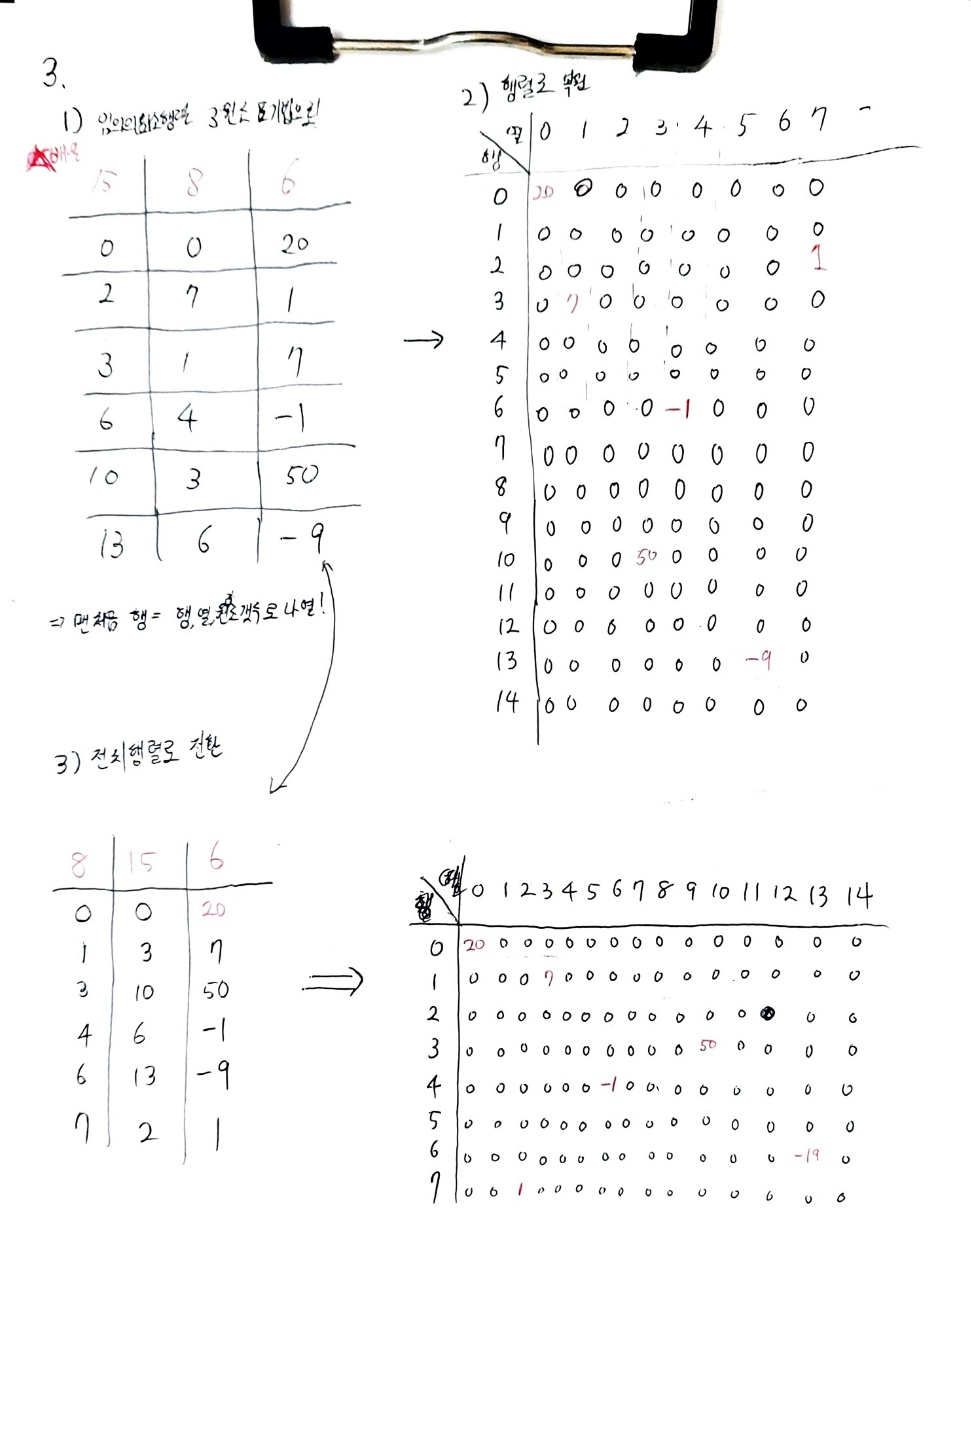 3.
1) 임의의 희소행렬 3원소 표기법으로
15 8 6
0 0 20
2 7 1
3 1 7
6 4 -1
10 3 50
13 6 -9
⇒ 맨처음 행 = 행,열,원소 갯수로 나열!
2) 행렬로 복원
열 0 1 2 3 4 5 6 7
행
0 20 0 0 0 0 0 0 0
1 0 0 0 0 0 0 0 0
2 0 0 0 0 0 0 0 1
3 0 7 0 0 0 0 0 0
4 0 0 0 0 0 0 0 0
5 0 0 0 0 0 0 0 0
6 0 0 0 0 -1 0 0 0
7 0 0 0 0 0 0 0 0
8 0 0 0 0 0 0 0 0
9 0 0 0 0 0 0 0 0
10 0 0 0 50 0 0 0 0
11 0 0 0 0 0 0 0 0
12 0 0 0 0 0 0 0 0
13 0 0 0 0 0 0 -9 0
14 0 0 0 0 0 0 0 0
3) 전치행렬로 전환
8 15 6
0 0 20
1 3 7
3 10 50
4 6 -1
6 13 -9
7 2 1
⇒
열 0 1 2 3 4 5 6 7 8 9 10 11 12 13 14
행
0 20 0 0 0 0 0 0 0 0 0 0 0 0 0 0
1 0 0 0 7 0 0 0 0 0 0 0 0 0 0 0
2 0 0 0 0 0 0 0 0 0 0 0 0 0 0
3 0 0 0 0 0 0 0 0 0 0 50 0 0 0 0
4 0 0 0 0 0 0 -1 0 0 0 0 0 0 0 0
5 0 0 0 0 0 0 0 0 0 0 0 0 0 0 0
6 0 0 0 0 0 0 0 0 0 0 0 0 0 -19 0
7 0 0 1 0 0 0 0 0 0 0 0 0 0 0 0